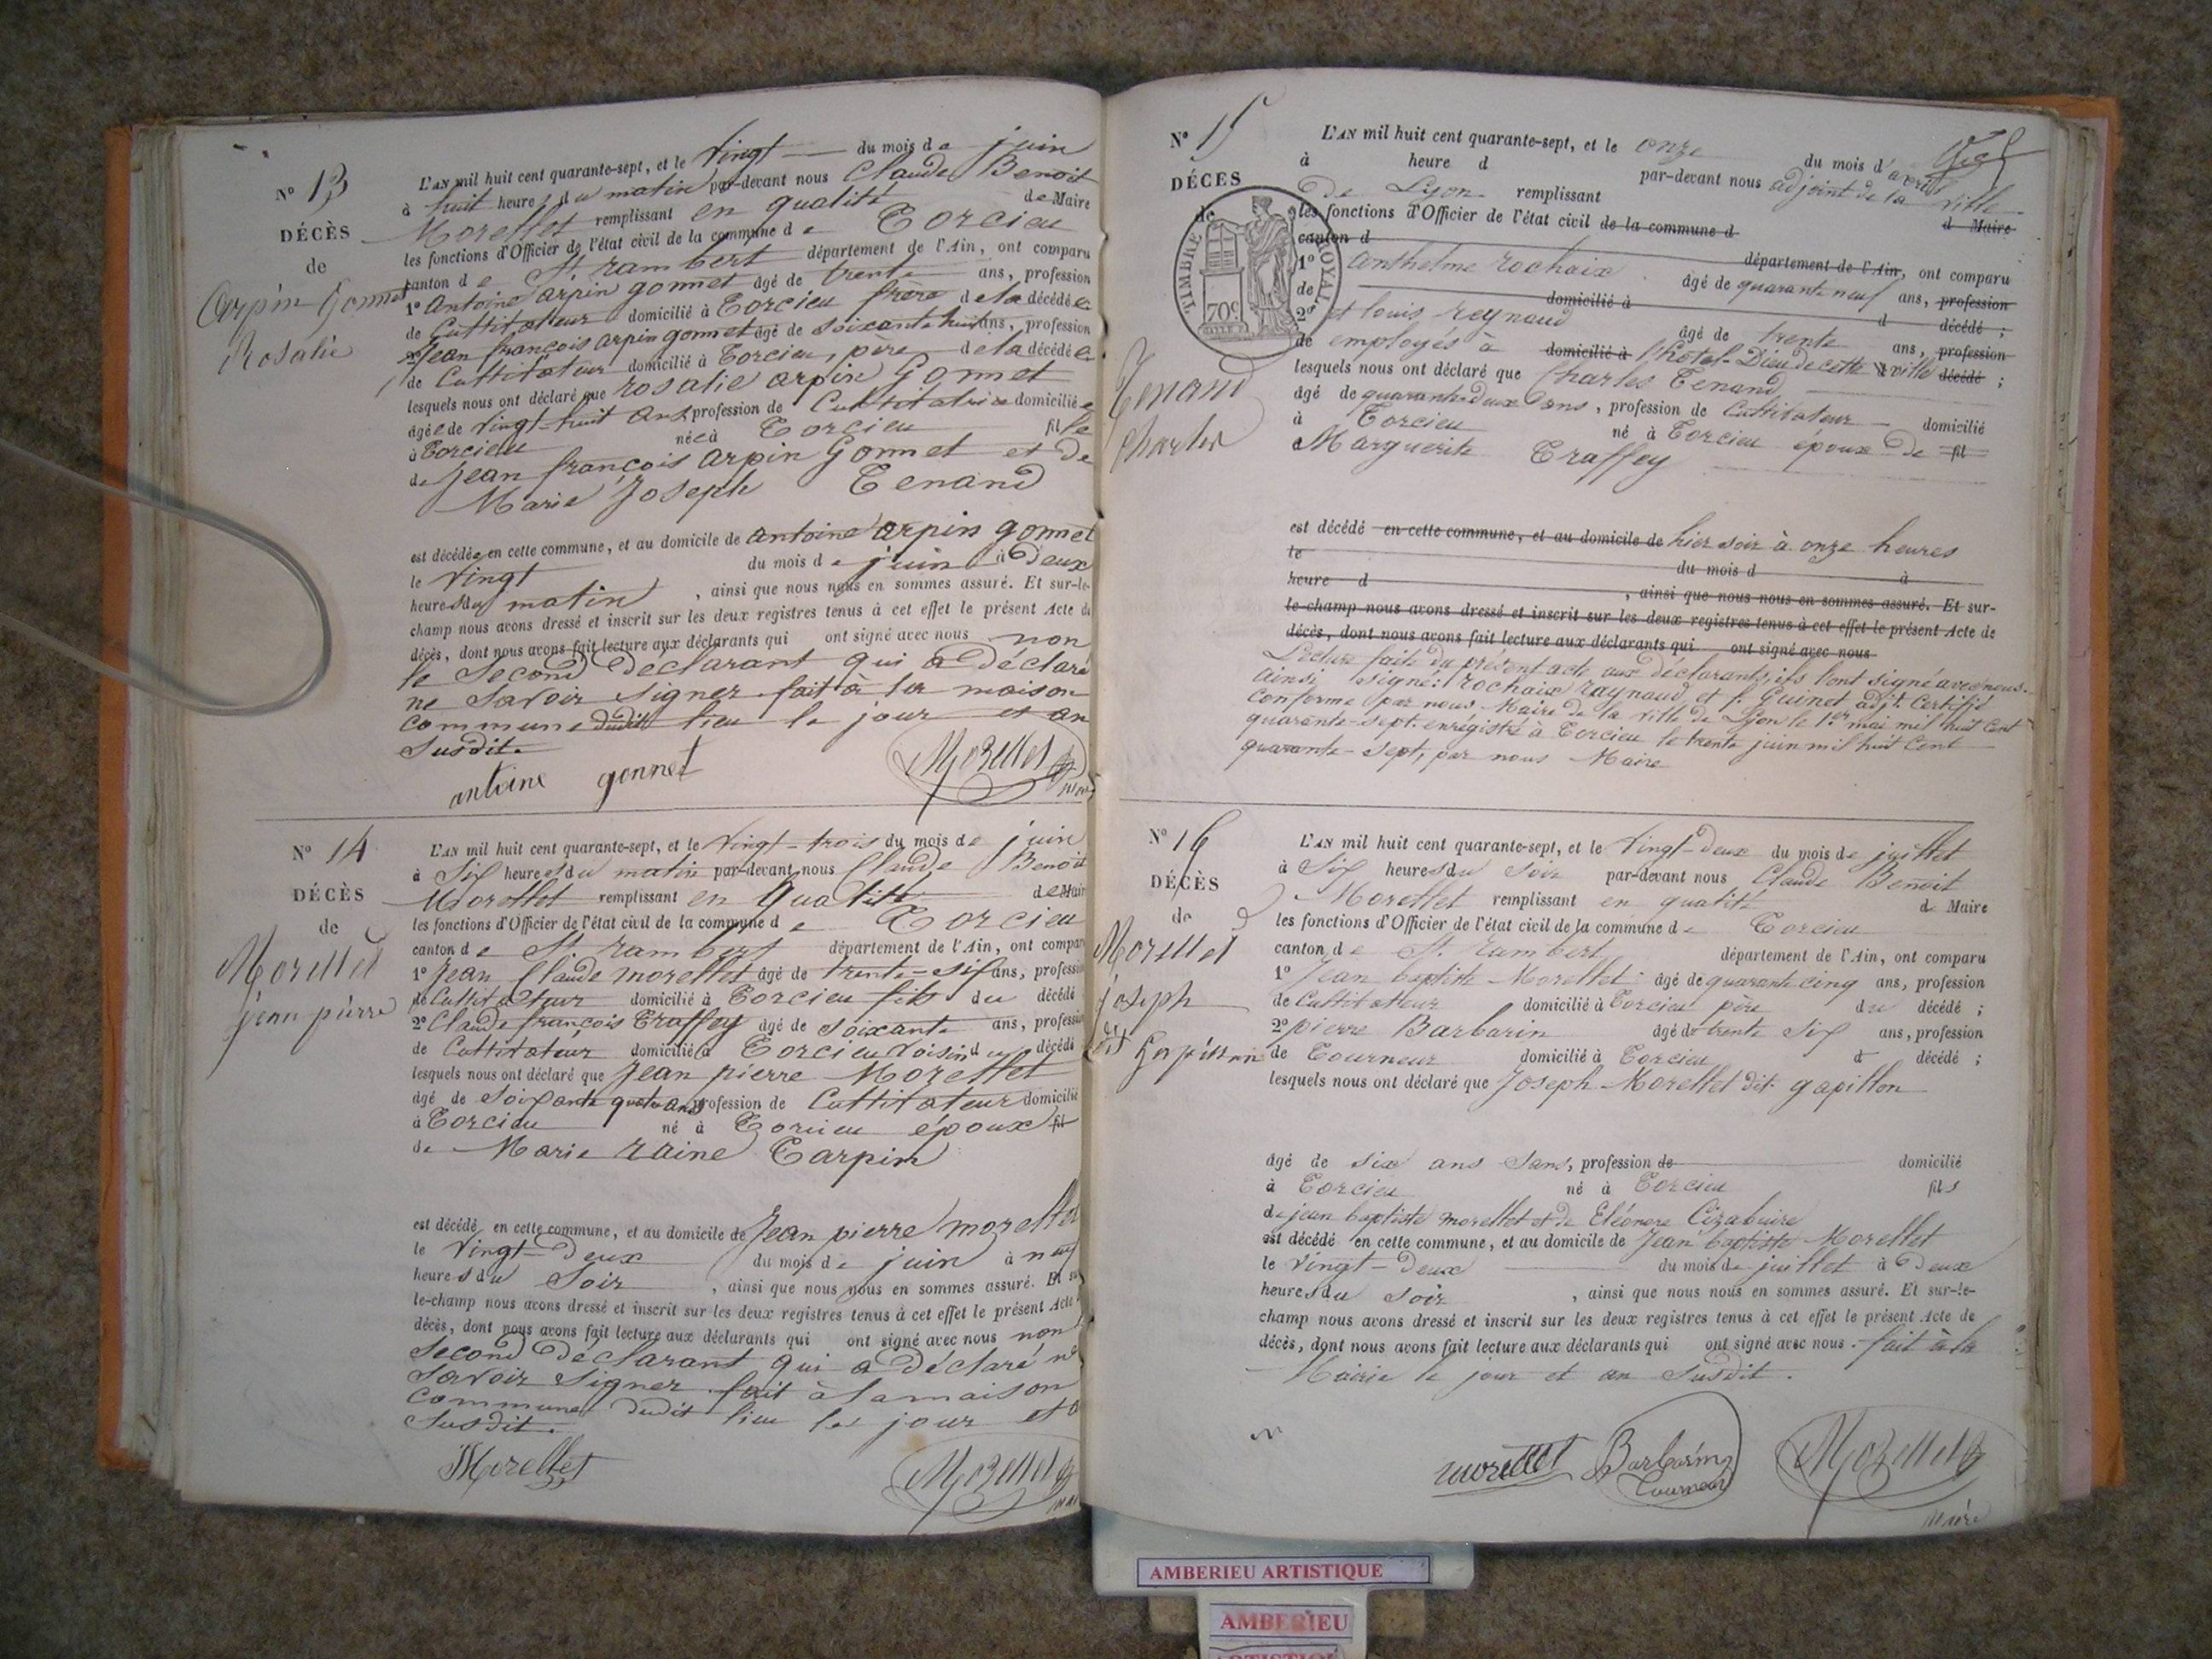 Nº 13
DÉCÈS
de
Arpin Gonnet
Rosalie
L'AN mil huit cent quarante-sept, et le Vingt du mois de juin
à huit heures du matin par-devant nous Claude Benoit
Morellet remplissant en qualité de Maire
les fonctions d'Officier de l'état civil de la commune de Torcieu
canton de St. rambert département de l'Ain, ont comparu
1º Antoine arpin gonnet âgé de trente ans, profession
de Cultivateur domicilié à Torcieu frère de la décédée
2º Jean françois arpin gonnet âgé de soixante huit ans, profession
de Cultivateur domicilié à Torcieu, père de la décédée
lesquels nous ont déclaré que rosalie arpin Gonnet
âgée de vingt-huit ans, profession de Cultivatrice domiciliée
à Torcieu née à Torcieu fille
de Jean françois Arpin Gonnet et de
Marie Joseph Tenand
est décédée en cette commune, et au domicile de antoine arpin gonnet
le vingt du mois de juin à Deux
heures du matin, ainsi que nous nous en sommes assuré. Et sur-le-
champ nous avons dressé et inscrit sur les deux registres tenus à cet effet le présent Acte de
décès, dont nous avons fait lecture aux déclarants qui ont signé avec nous non
le second Déclarant qui a déclaré
ne savoir signer fait à la maison
commune dudit lieu le jour et an
susdit.
antoine gonnet
Morellet
Nº 14
DÉCÈS
de
Morellet
jean pierre
L'AN mil huit cent quarante-sept, et le Vingt-trois du mois de juin
à Six heures du matin par-devant nous Claude Benoit
Morellet remplissant en Qualité de Maire
les fonctions d'Officier de l'état civil de la commune de Torcieu
canton de St. rambert département de l'Ain, ont comparu
1º Jean Claude morellet âgé de trente-six ans, profession
de Cultivateur domicilié à Torcieu fils du décédé
2º Claude françois Traffey âgé de soixante ans, profession
de Cultivateur domicilié à Torcieu voisin du décédé
lesquels nous ont déclaré que Jean pierre Morellet
âgé de soixante quatre ans, profession de Cultivateur domicilié
à Torcieu né à Torcieu époux fil
de Marie raine Tarpin
est décédé en cette commune, et au domicile de Jean pierre morellet
le vingt-deux du mois de juin à neuf
heures du soir, ainsi que nous nous en sommes assuré. Et sur
le-champ nous avons dressé et inscrit sur les deux registres tenus à cet effet le présent Acte
décès, dont nous avons fait lecture aux déclarants qui ont signé avec nous non
second Déclarant qui a déclaré ne
savoir signer fait à la maison
commune dudit lieu le jour et
susdit.
Morellet
Morellet
Nº 15
DÉCES
de
TIMBRE ROYAL
70c
Tenand
Charles
L'AN mil huit cent quarante-sept, et le onze du mois d'avril
à heure d par-devant nous adjoint de la ville
de Lyon remplissant d Maire
les fonctions d'Officier de l'état civil de la commune d
canton d département de l'Ain, ont comparu
1º anthelme rochaix âgé de quarante neuf ans, profession
de domicilié à d décédé ;
2º et louis reynaud âgé de trente ans, profession
de employés à domicilié à l'hotel-Dieu de cette ville décédé ;
lesquels nous ont déclaré que Charles Tenand
âgé de quarante-deux ans, profession de Cultivateur domicilié
à Torcieu né à Torcieu époux de fil
Marguerite Traffey
est décédé en cette commune, et au domicile de hier soir à onze heures
le du mois d à
heure d , ainsi que nous nous en sommes assuré. Et sur-
le-champ nous avons dressé et inscrit sur les deux registres tenus à cet effet le présent Acte de
décès, dont nous avons fait lecture aux déclarants qui ont signé avec nous
Lecture faite du présent acte aux déclarants, ils l'ont signé avec nous.
Ainsi signé: rochaix raynaud et f. Guinet adjt. Certifié
conforme par nous Maire de la ville de Lyon le 1er mai mil huit cent
quarante-sept. enrégistré à Torcieu le trente juin mil huit cent
quarante-sept, par nous Maire
Nº 16
DÉCÈS
de
Morellet
joseph
dit Gapillon
L'AN mil huit cent quarante-sept, et le Vingt-deux du mois de juillet
à Six heures du soir par-devant nous Claude Benoit
Morellet remplissant en qualité de Maire
les fonctions d'Officier de l'état civil de la commune de Torcieu
canton de St. rambert département de l'Ain, ont comparu
1º Jean baptiste Morellet âgé de quarante cinq ans, profession
de Cultivateur domicilié à Torcieu père du décédé ;
2º pierre Barbarin âgé de trente six ans, profession
de Tourneur domicilié à Torcieu d décédé ;
lesquels nous ont déclaré que Joseph Morellet dit gapillon
âgé de six ans sans, profession de domicilié
à Torcieu né à Torcieu fils
de jean baptiste morellet et de Eléonore Cizabuire
est décédé en cette commune, et au domicile de Jean baptiste Morellet
le Vingt-Deux du mois de juillet à Deux
heures du soir, ainsi que nous nous en sommes assuré. Et sur-le-
champ nous avons dressé et inscrit sur les deux registres tenus à cet effet le présent Acte de
décès, dont nous avons fait lecture aux déclarants qui ont signé avec nous. fait à la
Mairie le jour et an susdit.
morellet Barbarin Morellet
Tourneur
Maire
AMBERIEU ARTISTIQUE
AMBERIEU
ARTISTIQUE